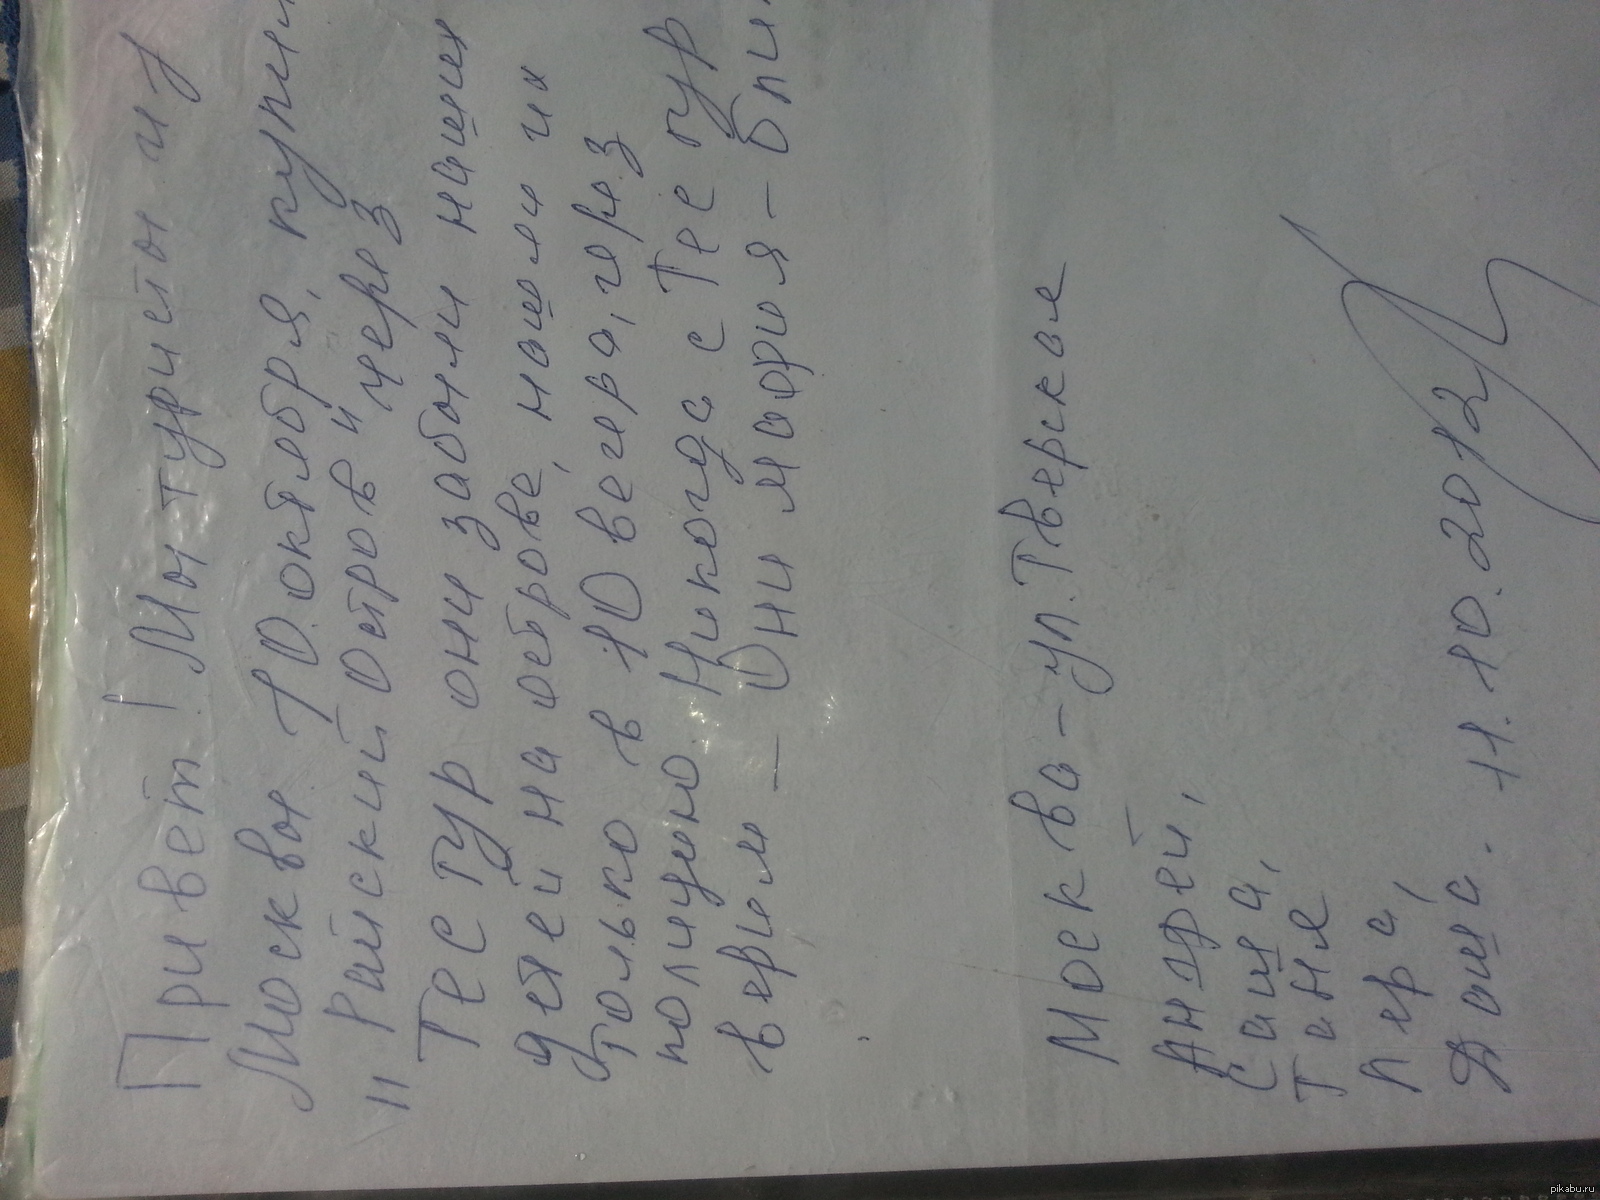 Привет! Мы туристы из
Москвы. 10 октября, купили
" Райский Остров" и через
ТЕС ТУР они забыли наших
детей на острове, нашли их
только в 10 вечера, через
полицию. Никогда с Тес тур
верим — Они мафия – бли
Москва – ул. Тверская
Андрей,
Саша,
Таня
Лера,
Даша. 11.10.2012
pikabu.ru